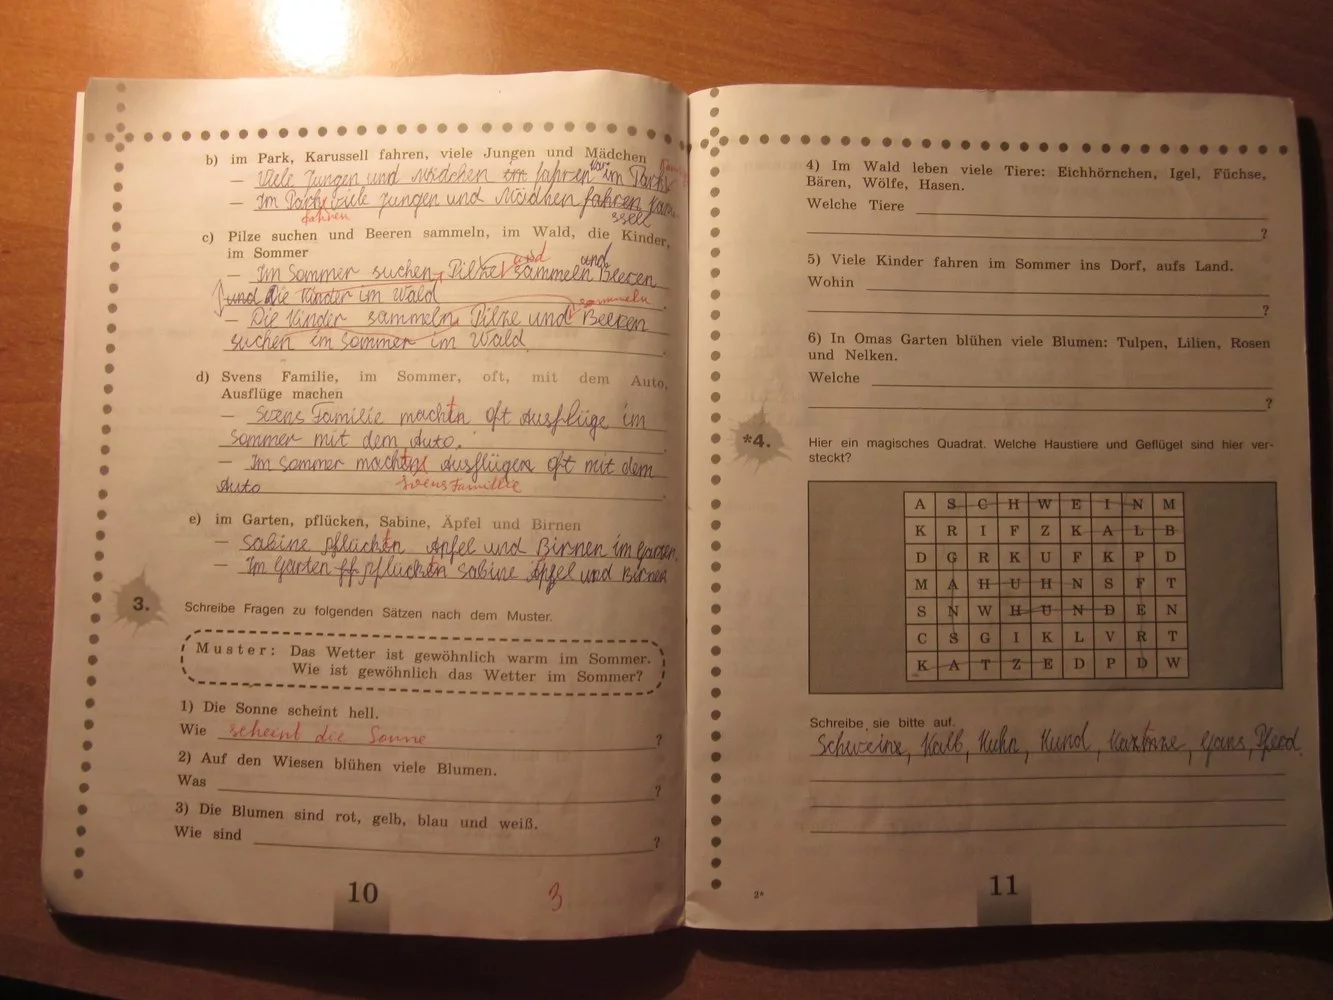 b) im Park, Karussell fahren, viele Jungen und Mädchen
— Viele Jungen und Mädchen fahren im Park
— Im Park viele Jungen und Mädchen fahren Karu-
fahren
ssell
c) Pilze suchen und Beeren sammeln, im Wald, die Kinder,
im Sommer
und und
— Im Sommer suchen Pilze sammeln Beeren
und die Kinder im Wald
sammeln
— Die Kinder sammeln Pilze und Beeren
suchen im Sommer im Wald.
d) Svens Familie, im Sommer, oft, mit dem Auto,
Ausflüge machen
— Svens Familie machtn oft Ausflüge im
Sommer mit dem Auto.
— Im Sommer machtn Ausflügen oft mit dem
Auto
Svens Familie
e) im Garten, pflücken, Sabine, Äpfel und Birnen
— Sabine pflücktn Äpfel und Birnen im Garten.
— Im Garten pflücktn Sabine Äpfel und Birnen
3. Schreibe Fragen zu folgenden Sätzen nach dem Muster.
Muster: Das Wetter ist gewöhnlich warm im Sommer.
Wie ist gewöhnlich das Wetter im Sommer?
1) Die Sonne scheint hell.
Wie scheint die Sonne ?
2) Auf den Wiesen blühen viele Blumen.
Was ?
3) Die Blumen sind rot, gelb, blau und weiß.
Wie sind ?
10
3
4) Im Wald leben viele Tiere: Eichhörnchen, Igel, Füchse,
Bären, Wölfe, Hasen.
Welche Tiere
?
5) Viele Kinder fahren im Sommer ins Dorf, aufs Land.
Wohin
?
6) In Omas Garten blühen viele Blumen: Tulpen, Lilien, Rosen
und Nelken.
Welche
?
*4. Hier ein magisches Quadrat. Welche Haustiere und Geflügel sind hier ver-
steckt?
A S C H W E I N M
K R I F Z K A L B
D G R K U F K P D
M A H U H N S F T
S N W H U N D E N
C S G I K L V R T
K A T Z E D P D W
Schreibe sie bitte auf.
Schweine, Kalb, Huhn, Hund, Katze, Gans, Pferd.
2*
11